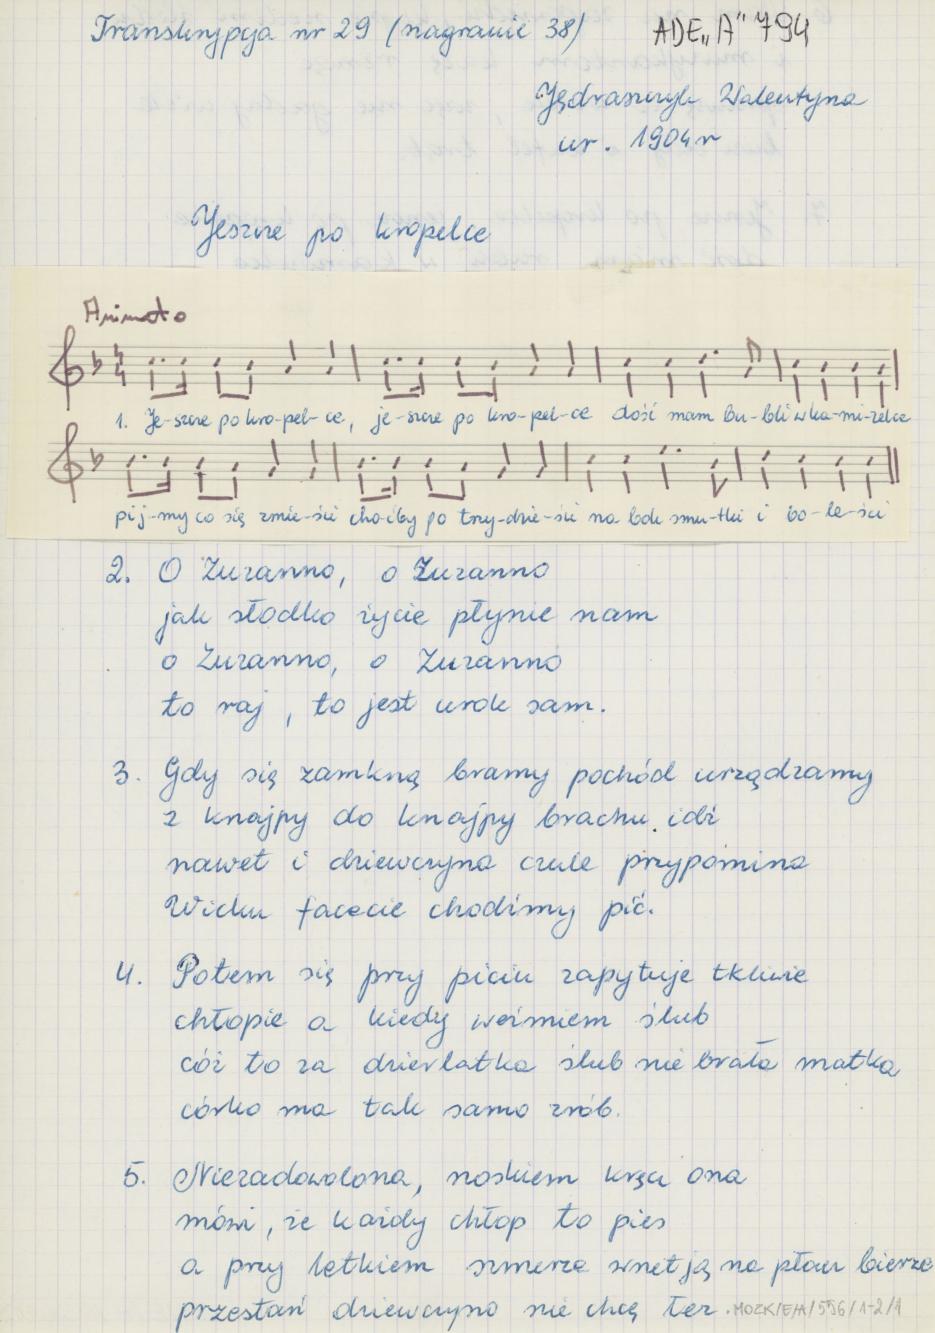 Transkrypcja nr 29 (nagranie 38) ADE„A” 794
Jędraszczyk Walentyna
ur. 1904 r
Jeszcze po kropelce
Animato
1. Je-szcze po kro-pel-ce, je-szcze po kro-pel-ce dość mam bu-bli w ka-mi-zelce
pij-my co się zmie-ści cho-ciby po trzy-dzie-ści na bok smu-tki i bo-le-ści
2. O Zuzanno, o Zuzanno
jak słodko życie płynie nam
o Zuzanno, o Zuzanno
to raj, to jest urok sam.
3. Gdy się zamkną bramy pochód urządzamy
z knajpy do knajpy brachu idź
nawet i dziewczyna czule przypomina
Wicku facecie chodźmy pić.
4. Potem się przy piciu zapytuje tkliwie
chłopie a kiedy weźmiem ślub
cóż to za dzierlatka ślub nie brała matka
córko ma tak samo zrób.
5. Niezadowolona, noskiem kręci ona
mówi, że każdy chłop to pies
a przy letkiem szmerze wnet ją na płacz bierze
przestań dziewczyno nie chcę łez. MOZK/E/A/556/1-2/1